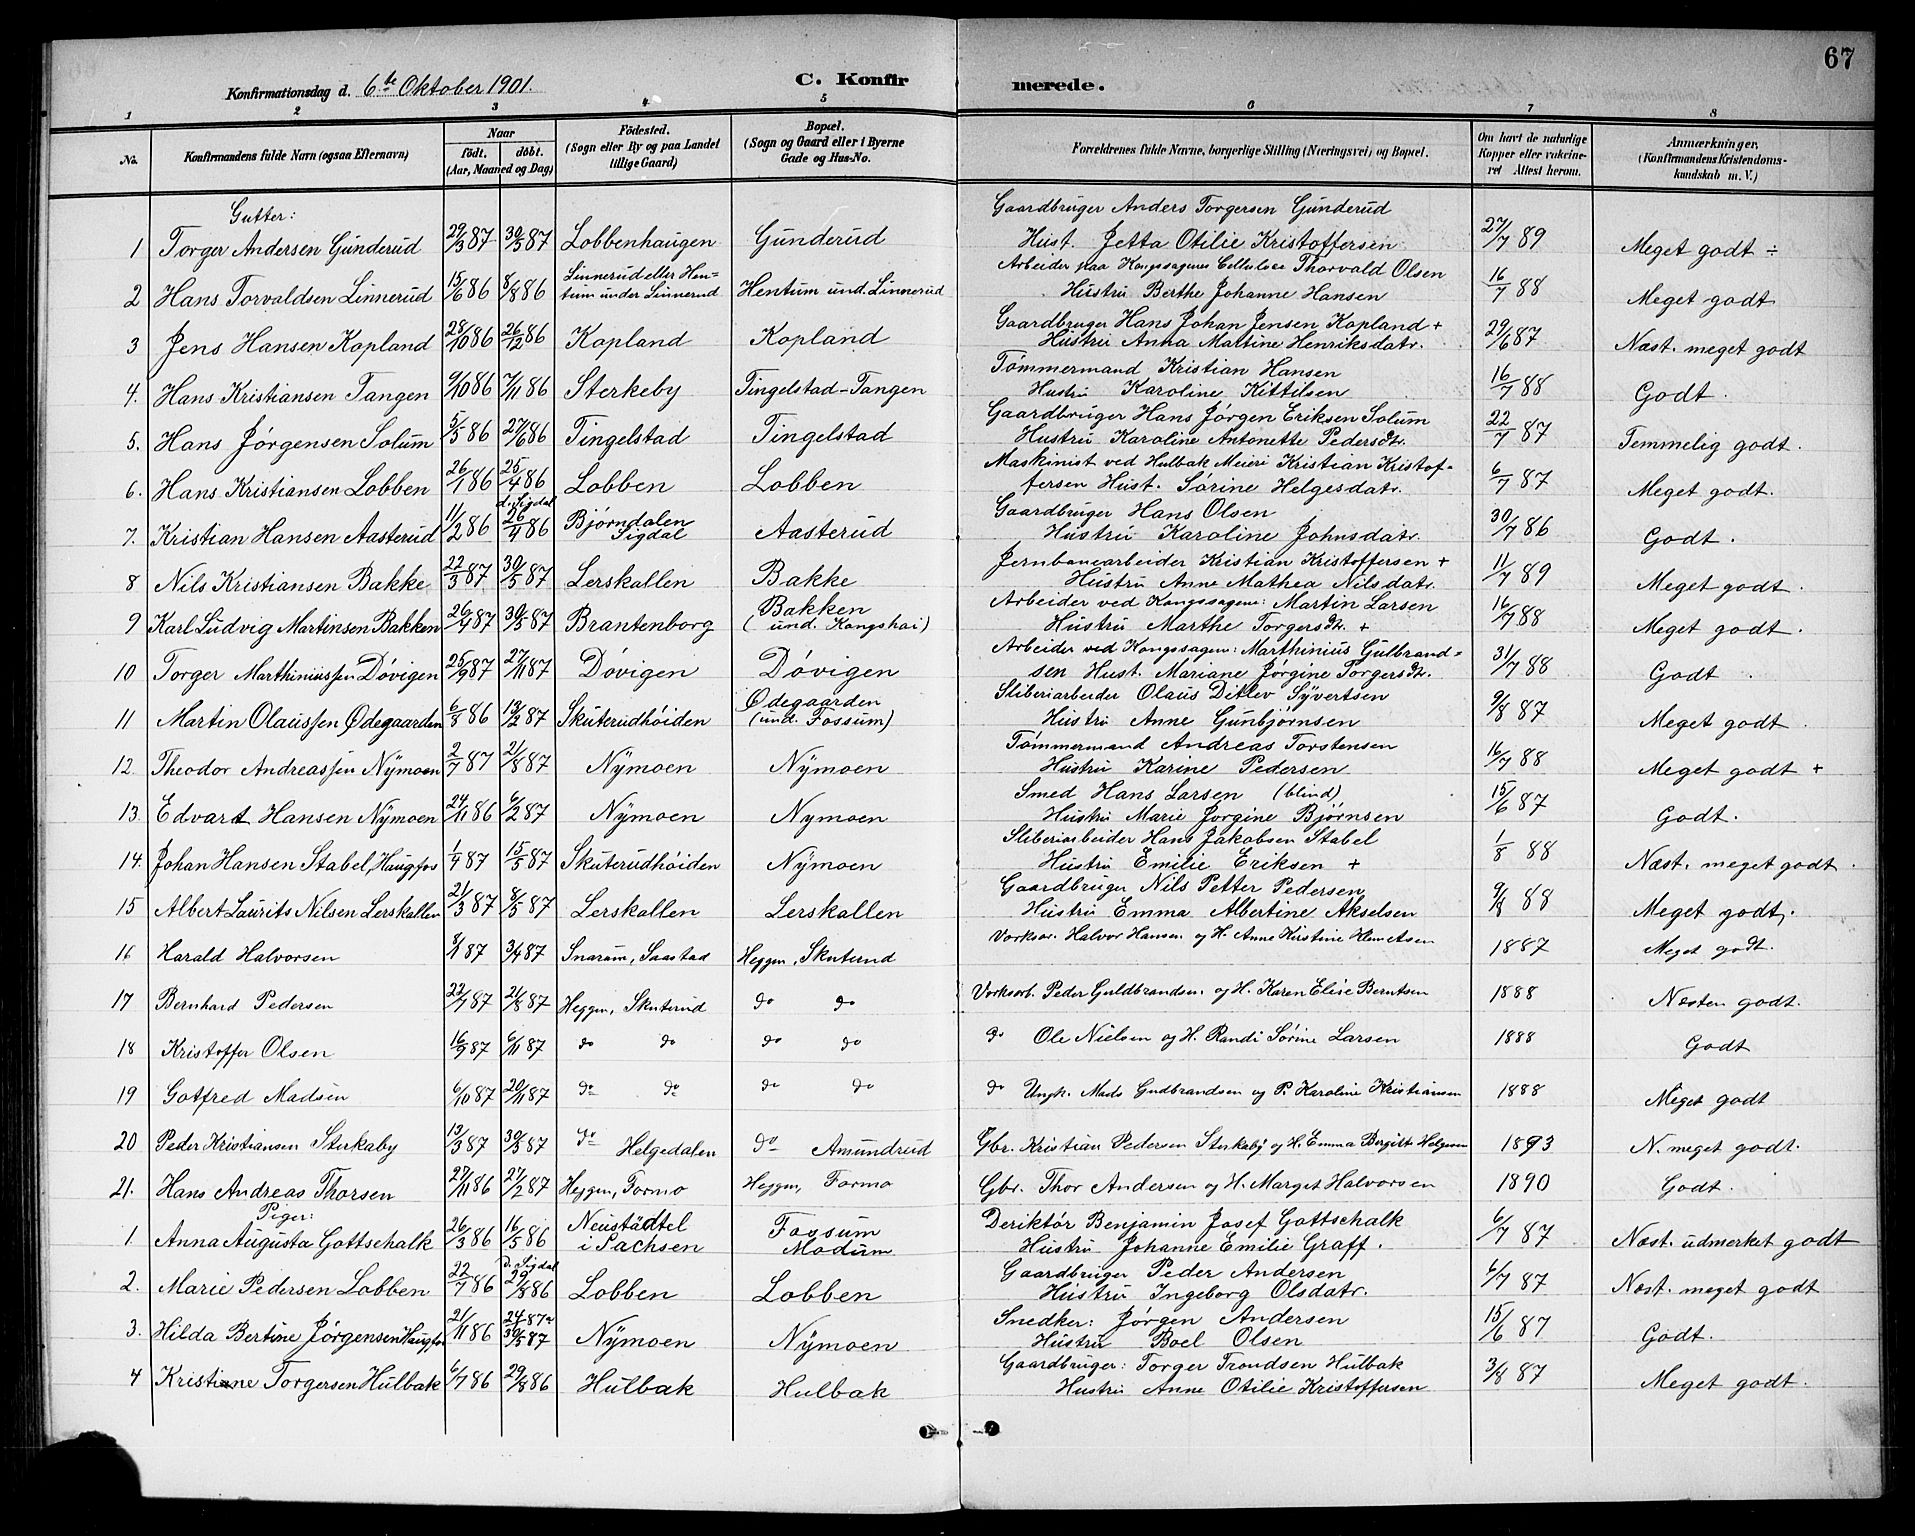 67
Konfirmationsdag d. 6te Oktober 1901.
C. Konfirmerede.
1 2 3 4 5 6 7 8
No. Konfirmandens fulde Navn (ogsaa Efternavn) Naar født. døbt. (Aar, Maaned og Dag) Fødested. (Sogn eller By og paa Landet tillige Gaard) Bopæl. (Sogn og Gaard eller i Byerne Gade og Hus-No. Forældrenes fulde Navne, borgerlige Stilling (Næringsvei) og Bopæl. Om havt de naturlige Kopper eller vakcineret Attest herom. Anmærkninger, (Konfirmandens Kristendomskundskab m. V.)
Gutter:
1 Torger Andersen Gunderud 29/3 87 30/5 87 Lobbenhaugen Gunderud Gaardbruger Anders Torgersen Gunderud Hust. Jetta Otilie Kristoffersen 27/7 89 Meget godt ÷
2 Hans Torvaldsen Linnerud 15/6 86 8/8 86 Linnerud eller Hentum under Linnerud Hentum und. Linnerud Arbeider paa Kongssagenes Cellulose Thorvald Olsen Hustru Berthe Johanne Hansen 16/7 88 Meget godt
3 Jens Hansen Kopland 28/10 86 26/12 86 Kopland Kopland Gaardbruger Hans Johan Jensen Kopland + Hustru Anna Martine Henriksdatr. 29/6 87 Næst. meget godt
4. Hans Kristiansen Tangen 9/10 86 7/11 86 Sterkeby Tingelstad-Tangen Tømmermand Kristian Hansen Hustru Karoline Kittilsen 16/7 88 Godt.
5. Hans Jørgensen Solum 5/5 86 27/6 86 Tingelstad Tingelstad Gaardbruger Hans Jørgen Eriksen Solum Hustru Karoline Antonette Pedersdtr. 22/7 87 Temmelig godt.
6. Hans Kristiansen Lobben 26/1 86 25/4 86 Lobben Lobben Maskinist ved Hulbak Meieri Kristian Kristoffersen Hust. Sørine Helgesdatr. 6/7 87 Meget godt.
7. Kristian Hansen Aasterud 11/2 86 d. Sigdal 26/4 86 Bjørndalen Sigdal Aasterud Gaardbruger Hans Olsen Hustru Karoline Johnsdatr. 30/7 86 Godt.
8 Nils Kristiansen Bakke 22/3 87 30/5 87 Lerskallen Bakke Jernbanearbeider Kristian Kristoffersen + Hustru Anne Mathea Nilsdatr. 11/7 89 Meget godt.
9 Karl Ludvig Martinsen Bakken 26/4 87 30/5 87 Brantenborg Bakken (und. Kongshai) Arbeider ved Kongssagene: Martin Larsen Hustru Marthe Torgersdtr. + 16/7 88 Meget godt.
10 Torger Marthiniussen Døvigen 25/9 87 27/11 87 Døvigen Døvigen Arbeider ved Kongssagen: Marthinius Gulbrandsen Hust. Mariane Jørgine Torgersdtr. 31/7 88 Godt.
11 Martin Olaussen Ødegaarden 6/8 86 13/2 87 Skuterudhøiden Ødegaarden (und. Fossum) Sliberiarbeider Olaus Ditlev Syvertsen Hustru Anne Gunbjørnsen 9/8 87 Meget godt.
12. Theodor Andreassen Nymoen 2/7 87 21/8 87 Nymoen Nymoen Tømmermand Andreas Torstensen Hustru Karine Pedersen 16/7 88 Meget godt +
13. Edvart Hansen Nymoen 24/11 86 6/2 87 Nymoen Nymoen Smed Hans Larsen (blind) Hustru Marie Jørgine Bjørnsen 15/6 87 Godt.
14. Johan Hansen Stabel, Haugfos 1/4 87 15/5 87 Skuterudhøiden Nymoen Sliberiarbeider Hans Jakobsen Stabel Hustru Emilie Eriksen + 1/8 88 Næst. meget godt.
15 Albert Laurits Nilsen Lerskallen 21/3 87 8/5 87 Lerskallen Lerskallen Gaardbruger Nils Petter Pedersen Hustru Emma Albertine Akselsen 9/8 88 Meget godt.
16 Harald Halvorsen 8/1 87 3/4 87 Snarum, Saastad Heggen, Skuterud Værksar. Halvor Hansen og H. Anne Kirstine Klemetsen 1887 Meget godt.
17 Bernhard Pedersen 22/7 87 21/8 87 Heggen, Skuterud do do Værksarb. Peder Guldbrandsen og H. Karen Elise Berntsen 1888 Næsten godt.
18 Kristoffer Olsen 16/9 87 6/11 87 do do do do do Ole Nielsen og H. Randi Sørine Larsen 1888 Godt
19 Gotfred Madsen 6/10 87 20/11 87 do do do do do Ungk. Mads Gudbrandsen og P. Karoline Kristiansen 1888 Meget godt
20 Peder Kristiansen Sterkaby 13/3 87 30/5 87 do Helgedalen do Amundrud Gbr. Kristian Pedersen Sterkaby og H. Emma Bergitte Helgesen 1893 N. meget godt.
21. Hans Andreas Thorsen 27/11 86 27/2 87 Heggen, Formo Heggen, Formo Gbr. Thor Andersen og H. Marget Halvorsen 1890 Godt.
Piger:
1. Anna Augusta Gottschalk 26/3 86 16/5 86 Neustädtel i Sachsen Fossum Modum Deriktør Benjamin Josef Gottschalk Hustru Johanne Emilie Graff. 6/7 87 Næst. udmerket godt
2. Marie Pedersen Lobben 22/7 86 d. Sigdal 29/8 86 Lobben Lobben Gaardbruger Peder Andersen Hustru Ingeborg Olsdatr. 6/7 87 Næst. meget godt
3. Hilda Bertine Jørgensen Haugfos 21/11 86 30/5 87 Nymoen Nymoen Snedker: Jørgen Andersen Hustru Boel Olsen 15/6 87 Godt.
4 Kristiane Torgersen Hulbak 6/7 86 29/8 86 Hulbak Hulbak Gaardbruger: Torger Trondsen Hulbak Hustru Anne Otilie Kristoffersen 3/8 87 Meget godt.